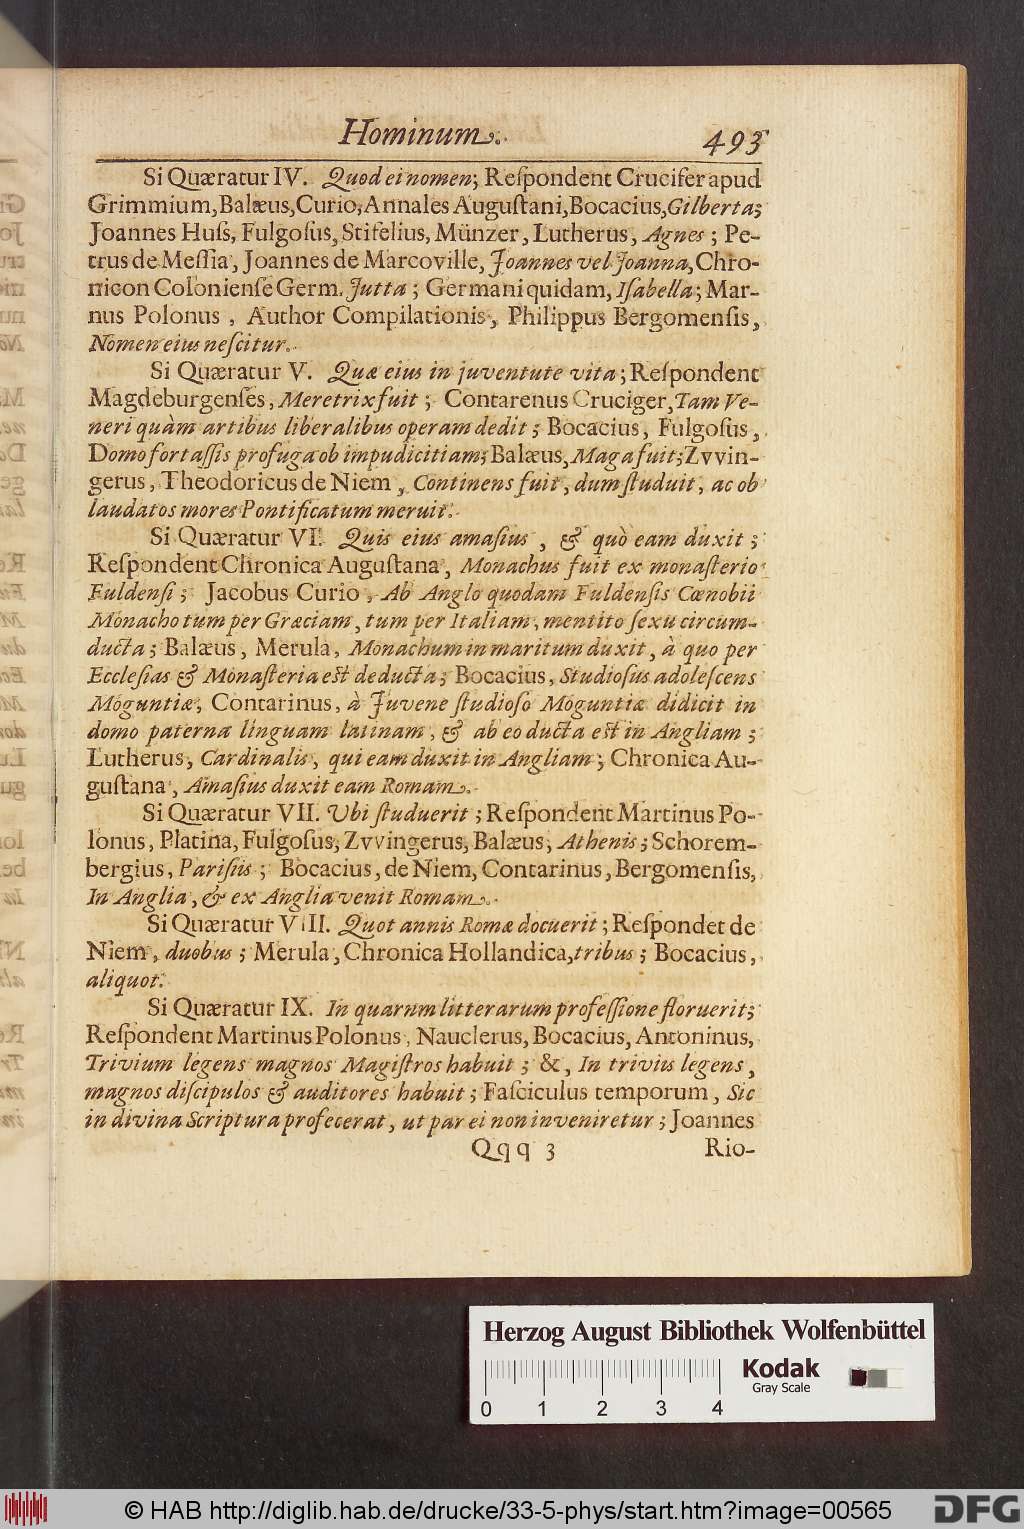 Hominum.
493
Si Quæratur IV. Quod ei nomen; Reſpondent Crucifer apud
Grimmium, Balæus, Curio, Annales Auguſtani, Bocacius, Gilberta;
Joannes Huſs, Fulgoſus, Stifelius, Münzer, Lutherus, Agnes; Pe-
trus de Meſſia, Joannes de Marcoville, Joannes vel Joanna, Chro-
nicon Colonienſe Germ. Jutta; Germani quidam, Iſabella; Mar-
nus Polonus, Author Compilationis, Philippus Bergomenſis,
Nomen eius neſcitur.
Si Quæratur V. Quæ eius in juventute vita; Reſpondent
Magdeburgenſes, Meretrix fuit; Contarenus Cruciger, Tam Ve-
neri quàm artibus liberalibus operam dedit; Bocacius, Fulgoſus,
Domo fortaſſis profuga ob impudicitiam; Balæus, Maga fuit; Zvvin-
gerus, Theodoricus de Niem, Continens fuit, dum ſtuduit, ac ob
laudatos mores Pontificatum meruit.
Si Quæratur VI. Quis eius amaſius, & quò eam duxit;
Reſpondent Chronica Auguſtana, Monachus fuit ex monaſterio
Fuldenſi; Jacobus Curio, Ab Anglo quodam Fuldenſis Cœnobii
Monacho tum per Græciam, tum per Italiam, mentito ſexu circum-
ducta; Balæus, Merula, Monachum in maritum duxit, à quo per
Eccleſias & Monaſteria eſt deducta; Bocacius, Studioſus adoleſcens
Moguntiæ, Contarinus, à Juvene ſtudioſo Moguntiæ didicit in
domo paterna linguam latinam, & ab eo ducta eſt in Angliam;
Lutherus, Cardinalis, qui eam duxit in Angliam; Chronica Au-
guſtana, Amaſius duxit eam Romam.
Si Quæratur VII. Ubi ſtuduerit; Reſpondent Martinus Po-
lonus, Platina, Fulgoſus, Zvvingerus, Balæus, Athenis; Schorem-
bergius, Pariſiis; Bocacius, de Niem, Contarinus, Bergomenſis,
In Anglia, & ex Anglia venit Romam.
Si Quæratur VIII. Quot annis Romæ docuerit; Reſpondet de
Niem, duobus; Merula, Chronica Hollandica, tribus; Bocacius,
aliquot.
Si Quæratur IX. In quarum litterarum profeſſione floruerit;
Reſpondent Martinus Polonus, Nauclerus, Bocacius, Antoninus,
Trivium legens magnos Magiſtros habuit; &, In triviis legens,
magnos diſcipulos & auditores habuit; Faſciculus temporum, Sic
in divina Scriptura profecerat, ut par ei non inveniretur; Joannes
Qqq 3
Rio-
Herzog August Bibliothek Wolfenbüttel
Kodak
Gray Scale
0 1 2 3 4
© HAB http://diglib.hab.de/drucke/33-5-phys/start.htm?image=00565
DFG